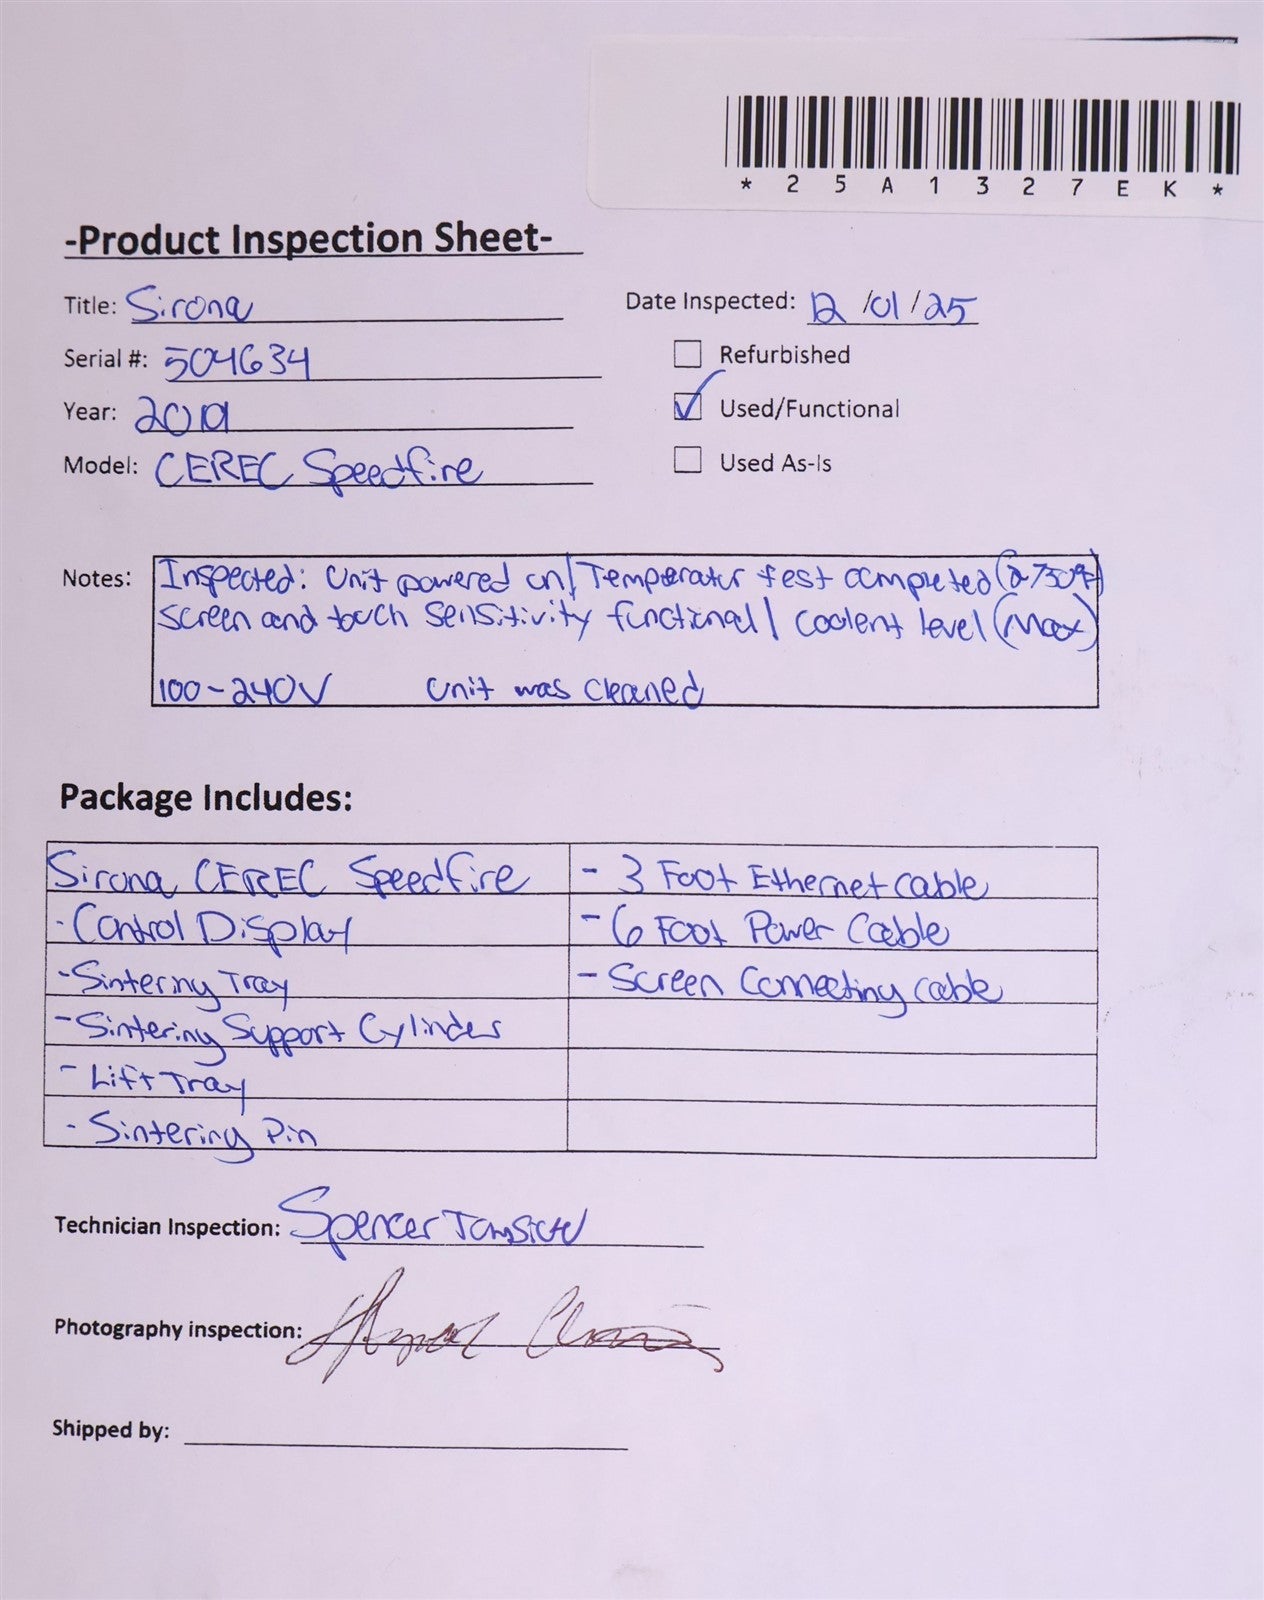 *25A1327EK*
-Product Inspection Sheet-
Title: Sirona
Date Inspected: 12/01/25
Serial #: 504634
Refurbished
Year: 2019
Used/Functional
Model: CEREC Speedfire
Used As-Is
Notes: Inspected: Unit powered on/ Temperatur test completed (2750°F)
screen and touch sensitivity functional/ coolent level (Max)
100-240V Unit was cleaned
Package Includes:
Sirona CEREC Speedfire
- 3 Foot Ethernet cable
- Control Display
- 6 Foot Power Cable
- Sintering Tray
- Screen Connecting cable
- Sintering Support Cylinder
- Lift Tray
- Sintering Pin
Technician Inspection: Spencer
Photography inspection:
Shipped by: